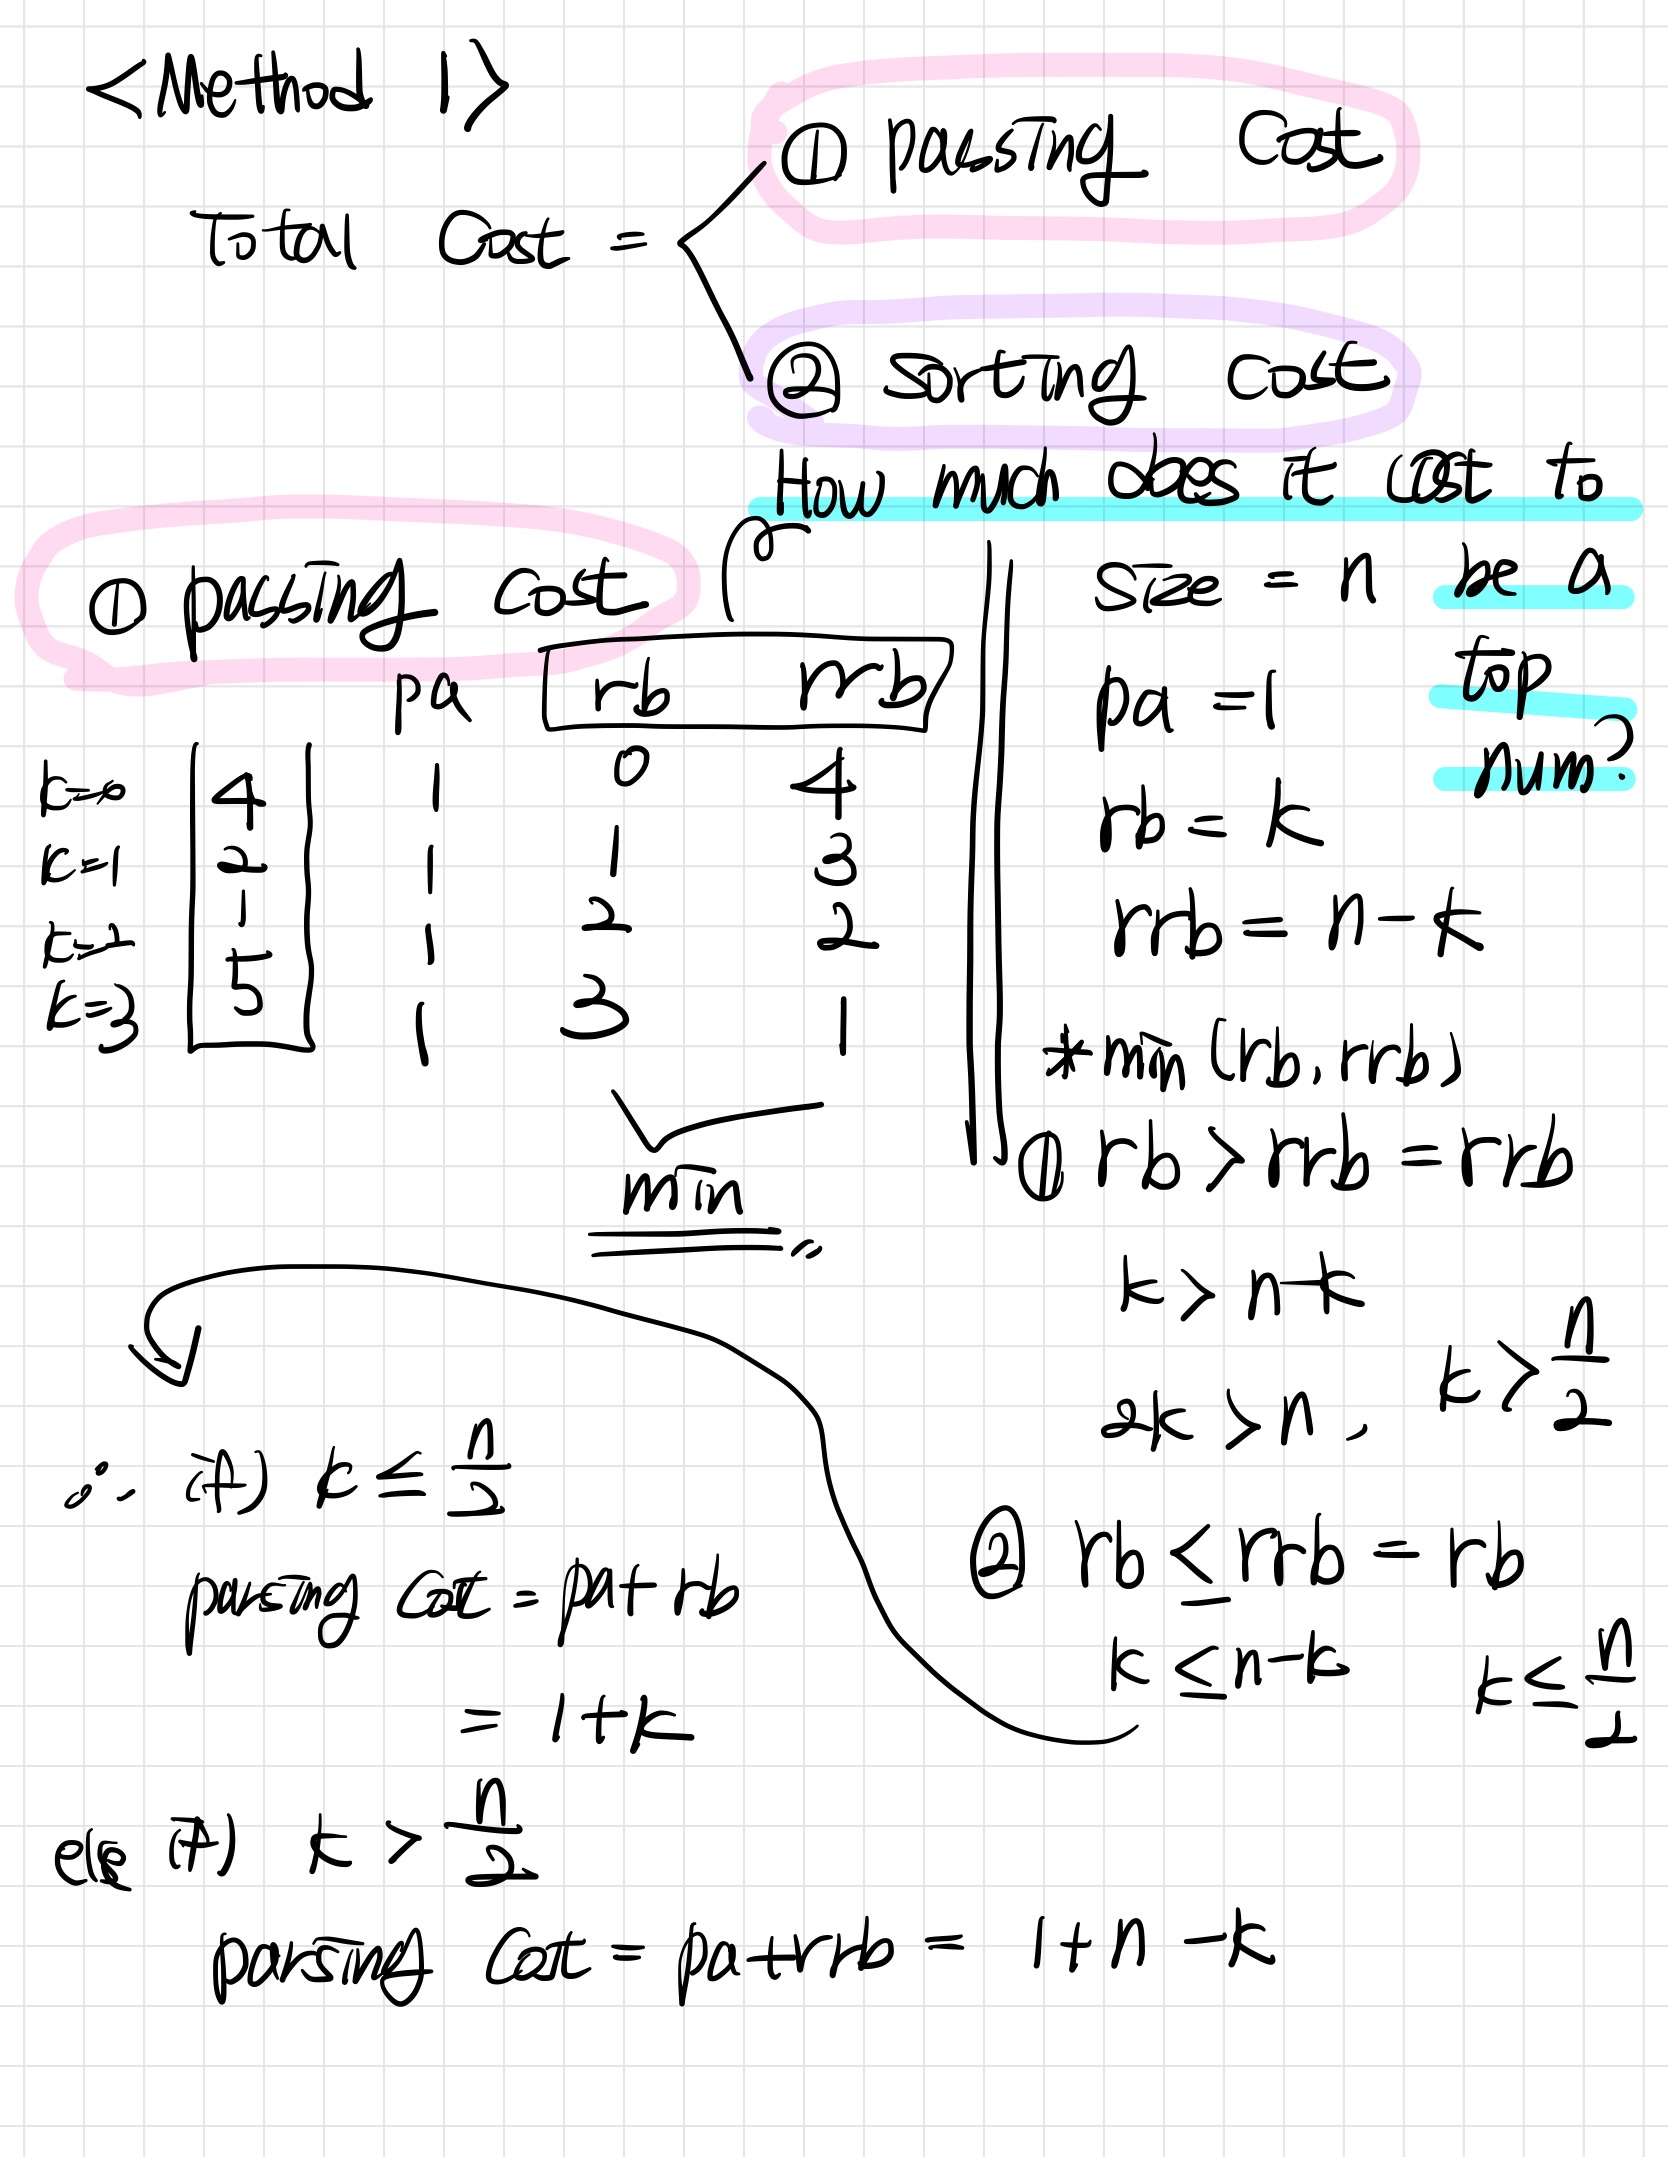 <Method 1>
Total Cost =
① passing cost
② sorting cost
How much does it cost to
be a
top
num?
① passing cost
pa rb rrb
k=0 4 1 0 4
k=1 2 1 1 3
k=2 1 1 2 2
k=3 5 1 3 1
min
size = n
pa = 1
rb = k
rrb = n-k
*min (rb, rrb)
① rb > rrb = rrb
k > n-k
2k > n, k > n/2
② rb ≤ rrb = rb
k ≤ n-k k ≤ n/2
∴ if) k ≤ n/2
parsing cost = pa + rb
= 1+k
else if) k > n/2
parsing cost = pa+rrb = 1+n-k